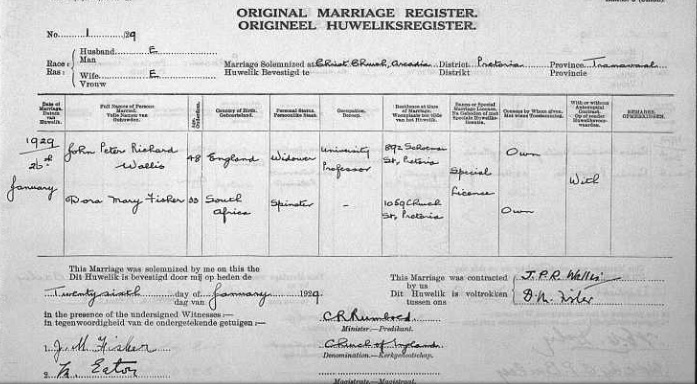 ORIGINAL MARRIAGE REGISTER.
ORIGINEEL HUWELIKSREGISTER.
No. 1/29
Race: Ras:
Husband Man E
Wife Vrouw E
Marriage Solemnized at Christ Church, Arcadia. District Pretoria Province Transvaal
Huwelik Bevestigd te Distrikt Provincie
Date of Marriage. Datum van Huwelik.
Full Names of Persons Married.
Country of Birth. Geboorteland.
Personal Status. Persoonlike Staat.
Occupation. Beroep.
Residence at time of Marriage.
Banns or Special Marriage License.
Consent by Whom given. Met wiens Toestemming.
With or without Antenuptial Contract.
REMARKS. OPMERKINGEN.
1929
26
January
John Peter Richard Wallis 48 England Widower University Professor 892 Schoeman St, Pretoria Special License Own With
Dora Mary Fisher 33 South Africa Spinster - 1069 Church St, Pretoria Own
This Marriage was solemnized by me on this the
Dit Huwelik is bevestigd door mij op heden de
Twenty sixth day of January 1929
dag van
in the presence of the undersigned Witnesses:—
in tegenwoordigheid van de ondergetekende getuigen:—
1. J. M. Fisher
2. Eaton
This Marriage was contracted by us J.P.R. Wallis
Dit Huwelik is voltrokken tussen ons D.M. Fisher
Minister.—Predikant.
Church of England
Denomination.—Kerkgenootschap.
Magistrate.—Magistraat.